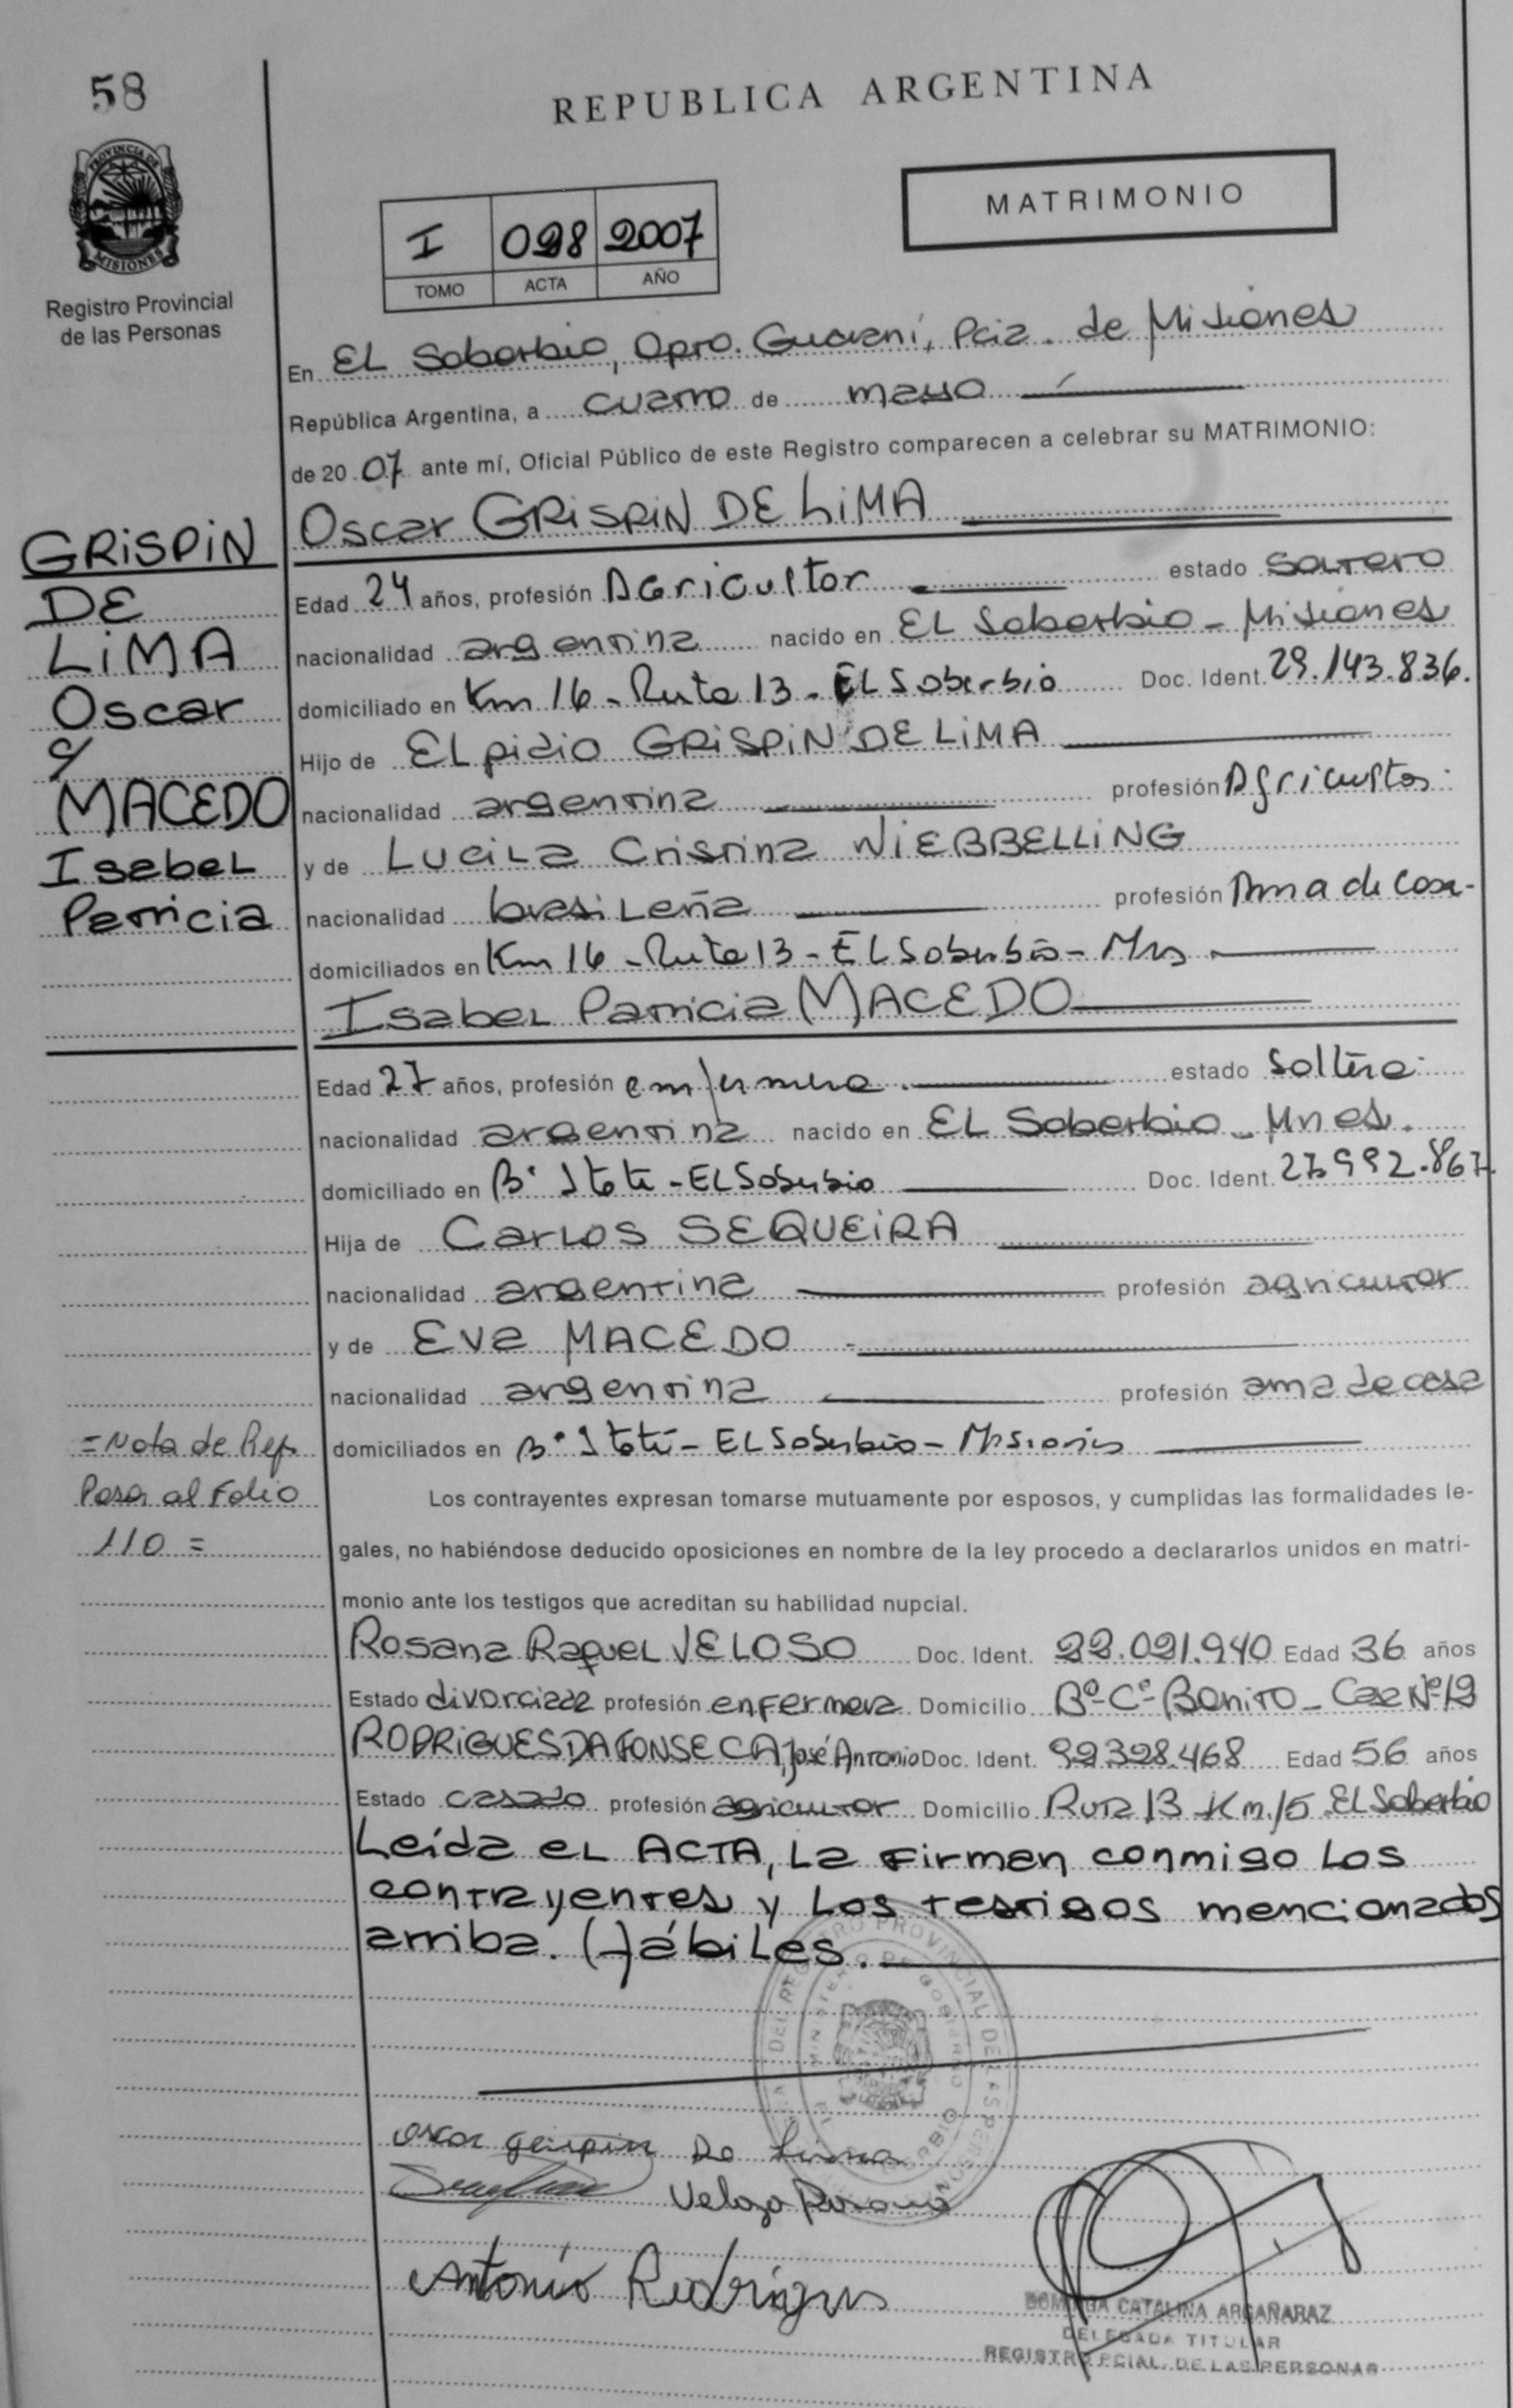 58
REPUBLICA ARGENTINA
PROVINCIA DE
MISIONES
Registro Provincial
de las Personas
MATRIMONIO
I 028 2007
TOMO ACTA AÑO
En EL Soberbio, Dpto. Guaraní, Pcia. de Misiones
República Argentina, a cuatro de mayo
de 2007 ante mí, Oficial Público de este Registro comparecen a celebrar su MATRIMONIO:
GRISPIN
DE
LIMA
Oscar
c/
MACEDO
Isabel
Patricia
Oscar GRISPIN DE LIMA
Edad 24 años, profesión Agricultor estado soltero
nacionalidad argentina nacido en EL Soberbio - Misiones
domiciliado en Km 16 - Ruta 13 - EL Soberbio Doc. Ident. 29.143.836.
Hijo de ELpidio GRISPIN DE LIMA
nacionalidad argentina profesión Agricultor
y de LuciLa Cristina WIEBBELLING
nacionalidad brasiLeña profesión Ama de Casa-
domiciliados en Km 16 - Ruta 13 - EL Soberbio - Mns
Isabel Patricia MACEDO
Edad 27 años, profesión enfermera estado Soltera
nacionalidad argentina nacido en EL Soberbio - Mnes.
domiciliado en B° Itatí - EL Soberbio Doc. Ident. 27.992.867.
Hija de Carlos SEQUEIRA
nacionalidad argentina profesión agricultor
y de Eva MACEDO
nacionalidad argentina profesión ama de casa
domiciliados en B° Itatí - EL Soberbio - Misiones
= Nota de Ref.
Pasa al Folio
110 =
Los contrayentes expresan tomarse mutuamente por esposos, y cumplidas las formalidades le-
gales, no habiéndose deducido oposiciones en nombre de la ley procedo a declararlos unidos en matri-
monio ante los testigos que acreditan su habilidad nupcial.
Rosana Raquel VELOSO Doc. Ident. 22.021.940 Edad 36 años
Estado divorciada profesión enfermera Domicilio B°- C°- Bonito - Casa N° 19
RODRIGUES DA FONSECA, José Antonio Doc. Ident. 92328.468 Edad 56 años
Estado casado profesión agricultor Domicilio Ruta 13 Km. 15 EL Soberbio
Leída el ACTA, La firman conmigo Los
contrayentes y Los testigos mencionados
arriba. Hábiles.
Oscar Grispin De Lima
Velozo Rosana
Antonio Rodrigues
CATALINA ARGAÑARAZ
DELEGADA TITULAR
REGISTRO PCIAL. DE LAS PERSONAS